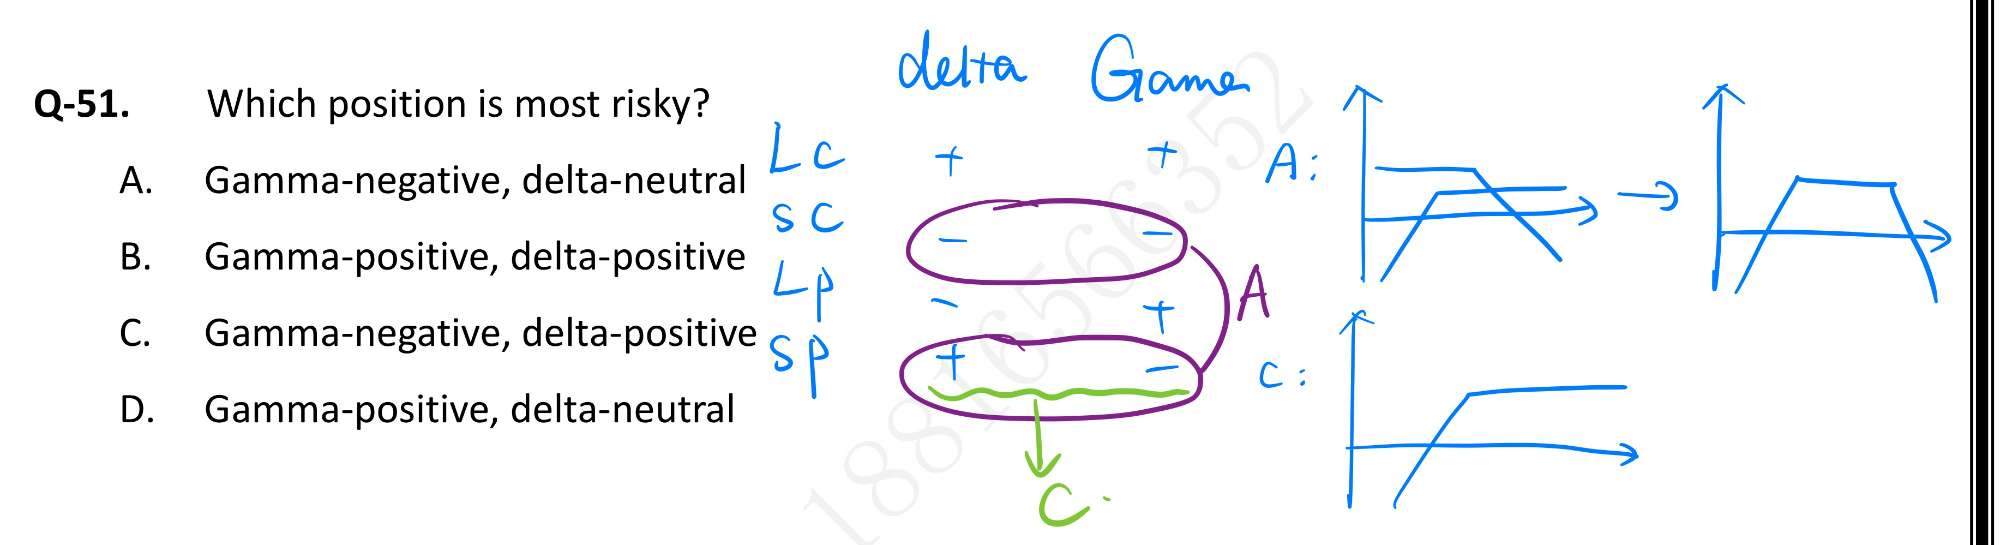 Q-51. Which position is most risky?
A. Gamma-negative, delta-neutral
B. Gamma-positive, delta-positive
C. Gamma-negative, delta-positive
D. Gamma-positive, delta-neutral
delta Gama
LC + +
SC - -
LP - +
SP + -
A
C.
A:
C:
18816566352